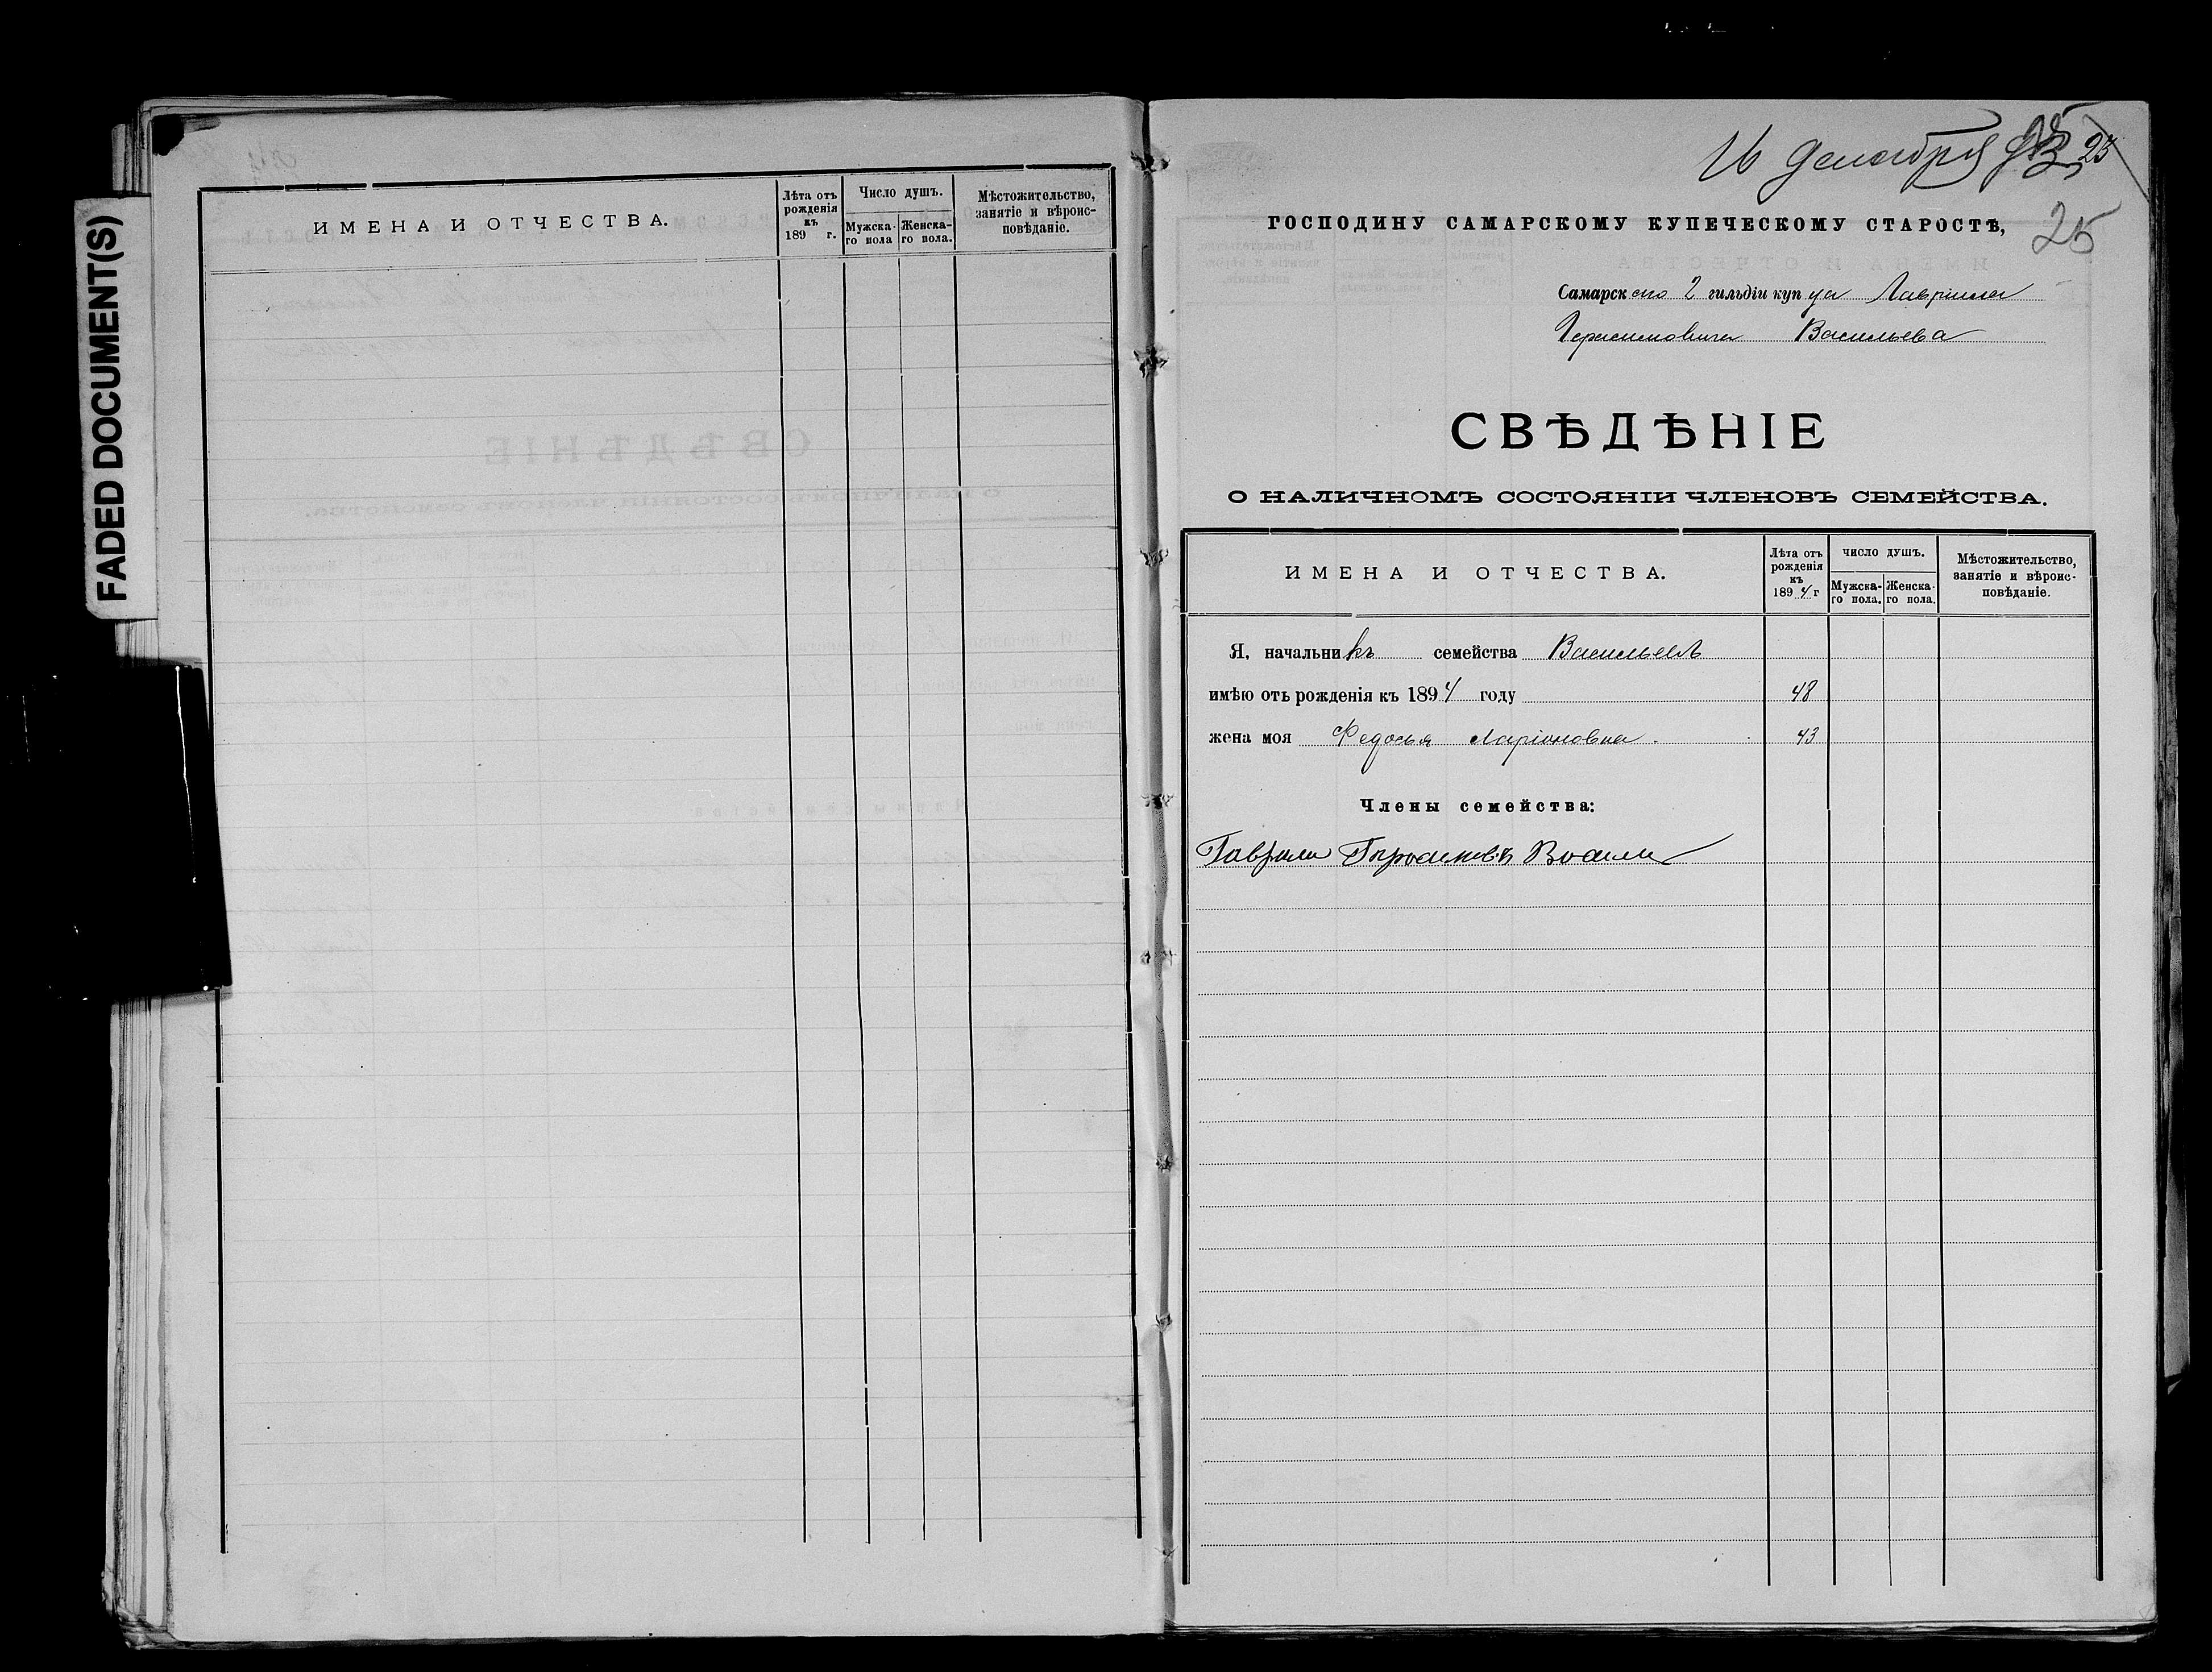 FADED DOCUMENT(S)
ИМЕНА И ОТЧЕСТВА.
Лѣта отъ рожденія къ 189 г.
Число душъ.
Мужска-го пола
Женска-го пола.
Мѣстожительство, занятіе и вѣроис-повѣданіе.
16 декабря 93
25
25
ГОСПОДИНУ САМАРСКОМУ КУПЕЧЕСКОМУ СТАРОСТѢ,
Самарскаго 2 гильдіи купца Гавріила
Герасимовича Васильева
СВѢДѢНІЕ
О НАЛИЧНОМЪ СОСТОЯНІИ ЧЛЕНОВЪ СЕМЕЙСТВА.
ИМЕНА И ОТЧЕСТВА.
Лѣта отъ рожденія къ 1894 г
ЧИСЛО ДУШЪ.
Мужска-го пола.
Женска-го пола.
Мѣстожительство, занятіе и вѣроис-повѣданіе.
Я, начальникъ семейства Васильевъ
имѣю отъ рожденія къ 1894 году 48
жена моя Федосья Ларіоновна. 43
Члены семейства: